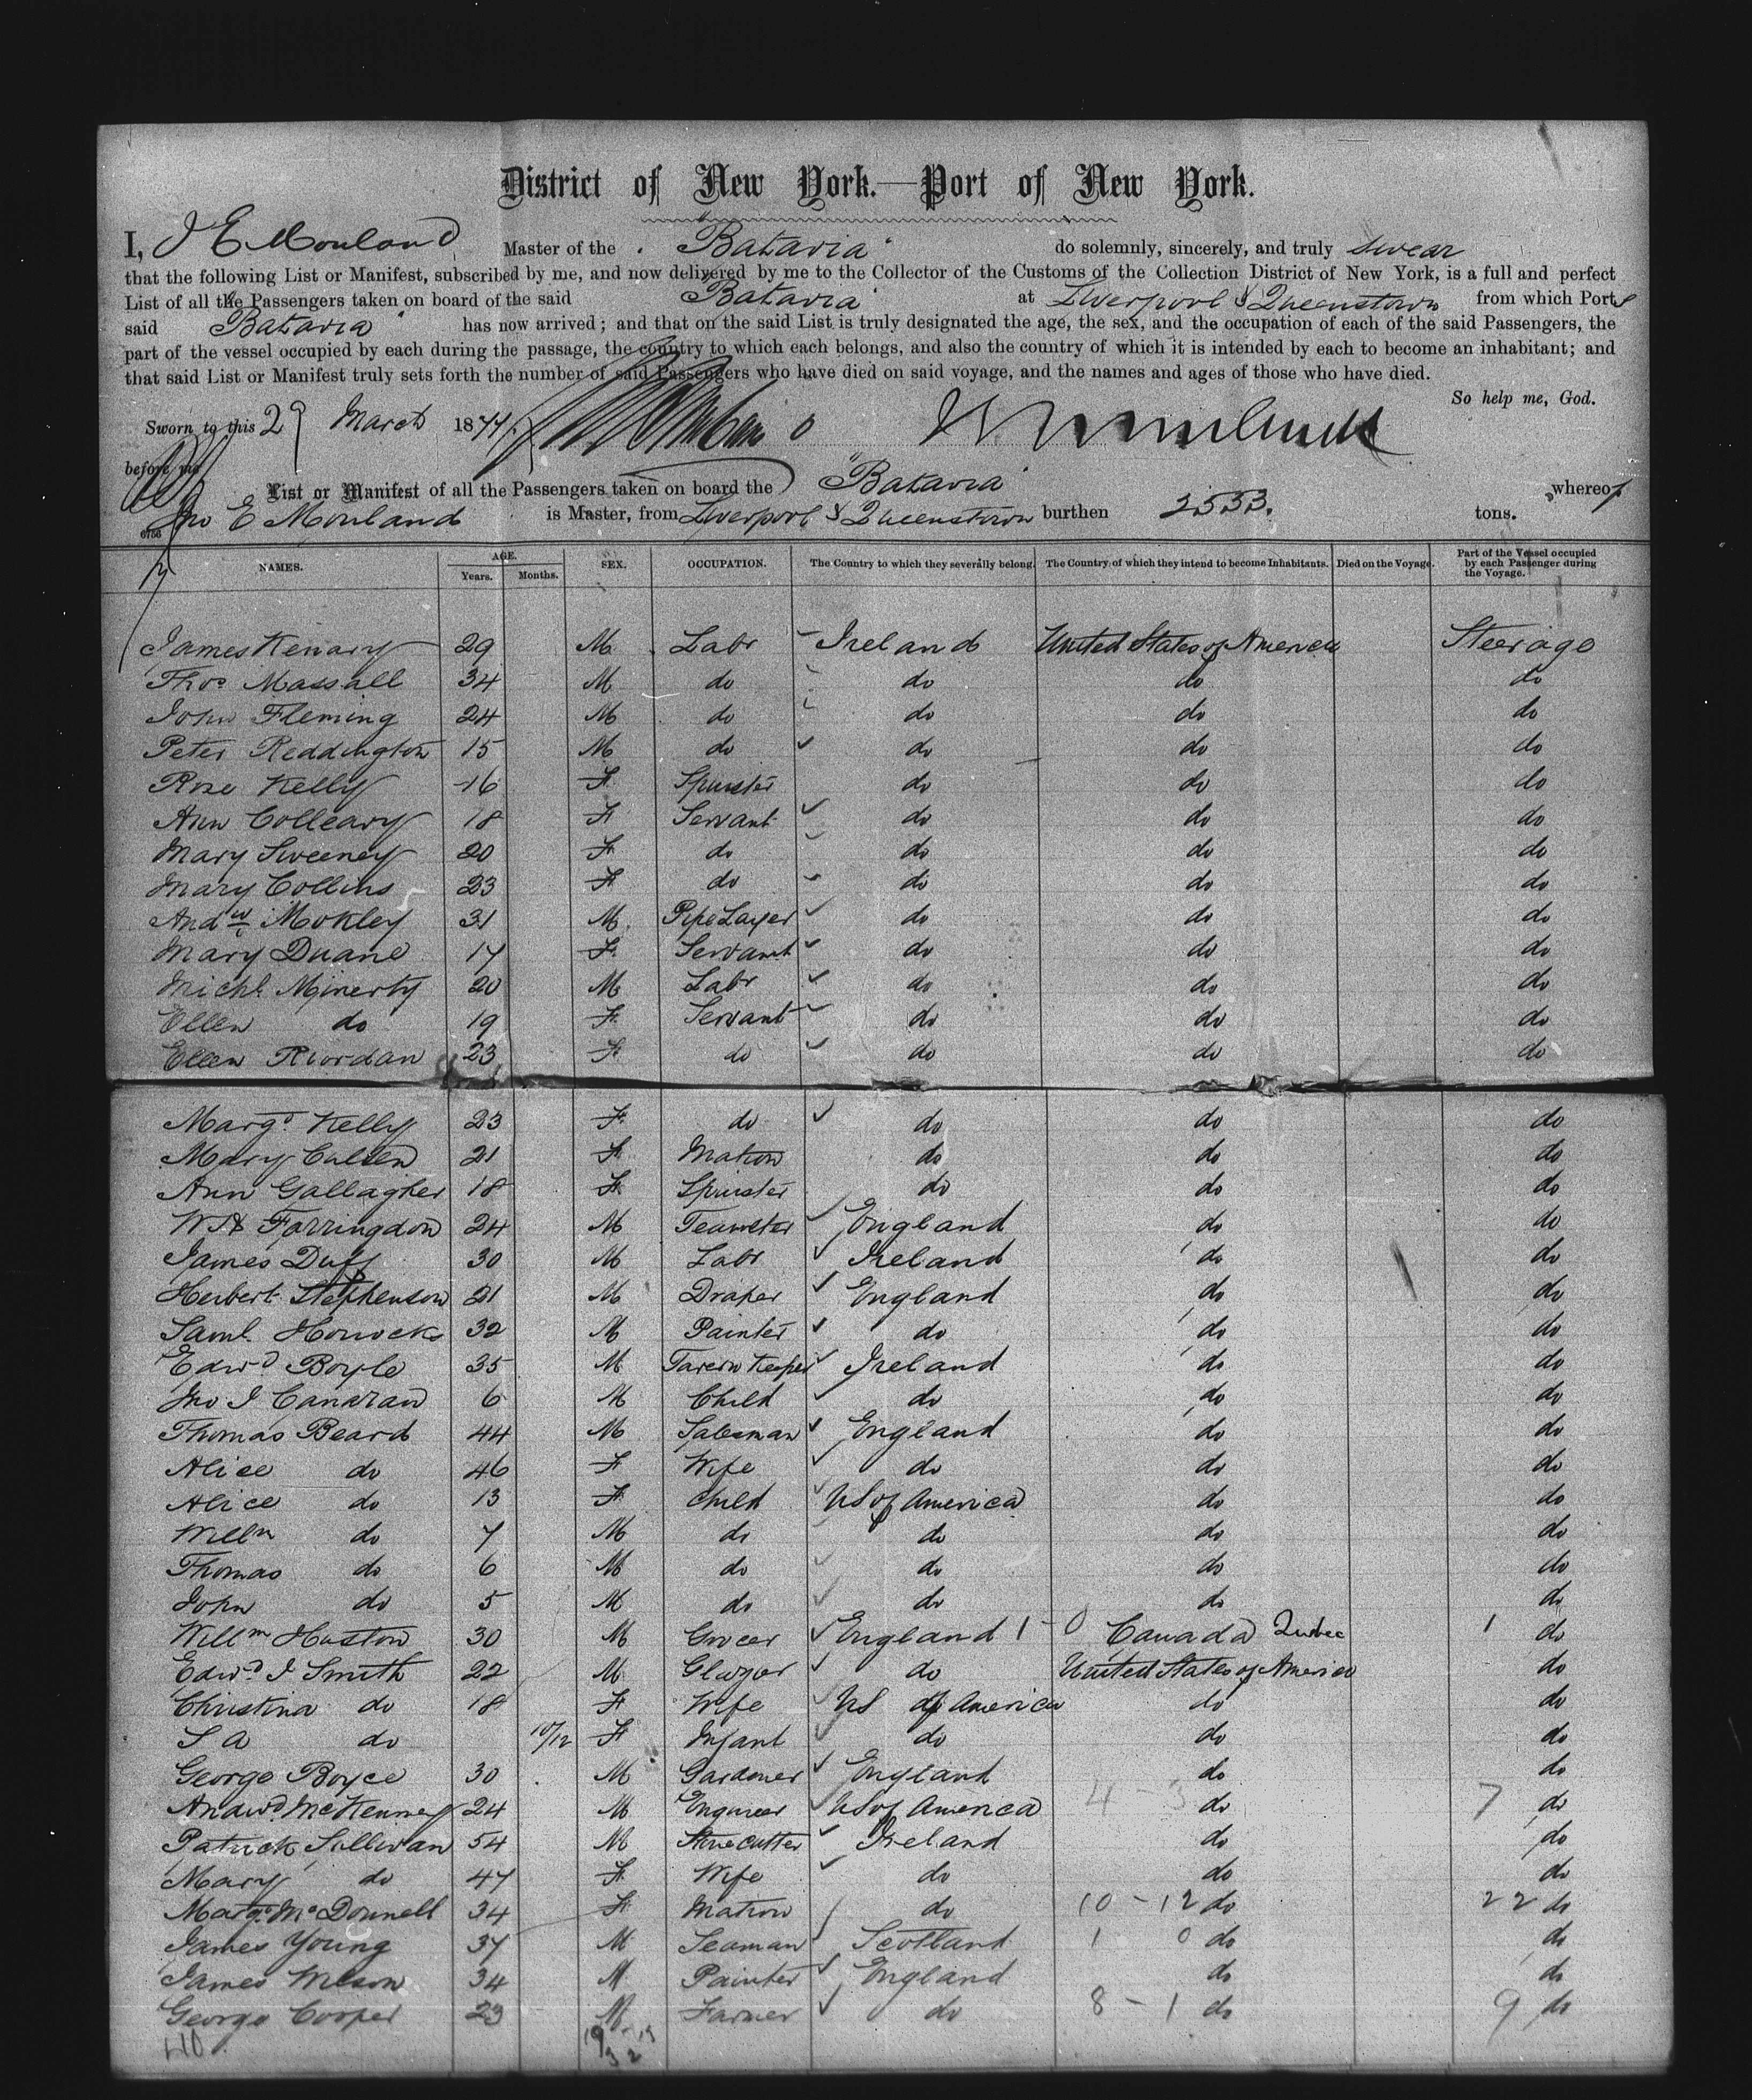 District of New York.—Port of New York.
I, J E Mouland Master of the "Batavia" do solemnly, sincerely, and truly swear
that the following List or Manifest, subscribed by me, and now delivered by me to the Collector of the Customs of the Collection District of New York, is a full and perfect
List of all the Passengers taken on board of the said "Batavia" at Liverpool & Queenstown from which Ports
said "Batavia" has now arrived; and that on the said List is truly designated the age, the sex, and the occupation of each of the said Passengers, the
part of the vessel occupied by each during the passage, the country to which each belongs, and also the country of which it is intended by each to become an inhabitant; and
that said List or Manifest truly sets forth the number of said Passengers who have died on said voyage, and the names and ages of those who have died.
So help me, God.
Sworn to this 29 March 1874
before me
List or Manifest of all the Passengers taken on board the "Batavia" whereof
Jno E Mouland is Master, from Liverpool & Queenstown burthen 2553. tons.
6756
NAMES. AGE. Years. Months. SEX. OCCUPATION. The Country to which they severally belong. The Country of which they intend to become Inhabitants. Died on the Voyage. Part of the Vessel occupied by each Passenger during the Voyage.
James Kenary 29 M Labr Ireland United States of America Steerage
Thos Massall 34 M do do do do
John Fleming 24 M do do do do
Peter Reddington 15 M do do do do
Rose Kelly 16 F Spinster do do do
Ann Colleary 18 F Servant do do do
Mary Sweeney 20 F do do do do
Mary Collins 23 F do do do do
Andw Mokley 31 M Pipe Layer do do do
Mary Duane 17 F Servant do do do
Michl Minerty 20 M Labr do do do
Ellen do 19 F Servant do do do
Ellen Riordan 23 F do do do do
Margt Kelly 23 F do do do do
Mary Cullen 21 F Matron do do do
Ann Gallagher 18 F Spinster do do do
W H Farringdon 24 M Teamster England do do
James Duff 30 M Labr Ireland do do
Herbert Stephenson 21 M Draper England do do
Saml Horrocks 32 M Painter do do do
Edwd Boyle 35 M Tavern Keeper Ireland do do
Jno J Canavan 6 M Child do do do
Thomas Beard 44 M Salesman England do do
Alice do 46 F Wife do do do
Alice do 13 F Child US of America do do
Willm do 7 M do do do do
Thomas do 6 M do do do do
John do 5 M do do do do
Willm Huston 30 M Grocer England 1 - 0 Canada Quebec 1 do
Edwd J Smith 22 M Glazier do United States of America do
Christina do 18 F Wife US of America do do
S A do 10/12 F Infant do do do
George Boyce 30 M Gardener England do do
Andwd McKenney 24 M Engineer US of America 4 - 3 do 7 do
Patrick Sullivan 54 M Stonecutter Ireland do do
Mary do 47 F Wife do do do
Margt McDonnell 34 F Matron do 10 - 12 do 22 do
James Young 37 M Seaman Scotland 1 0 do do
James Wilson 34 M Painter England do do
George Cooper 23 M Farmer do 8 - 1 do 9 do